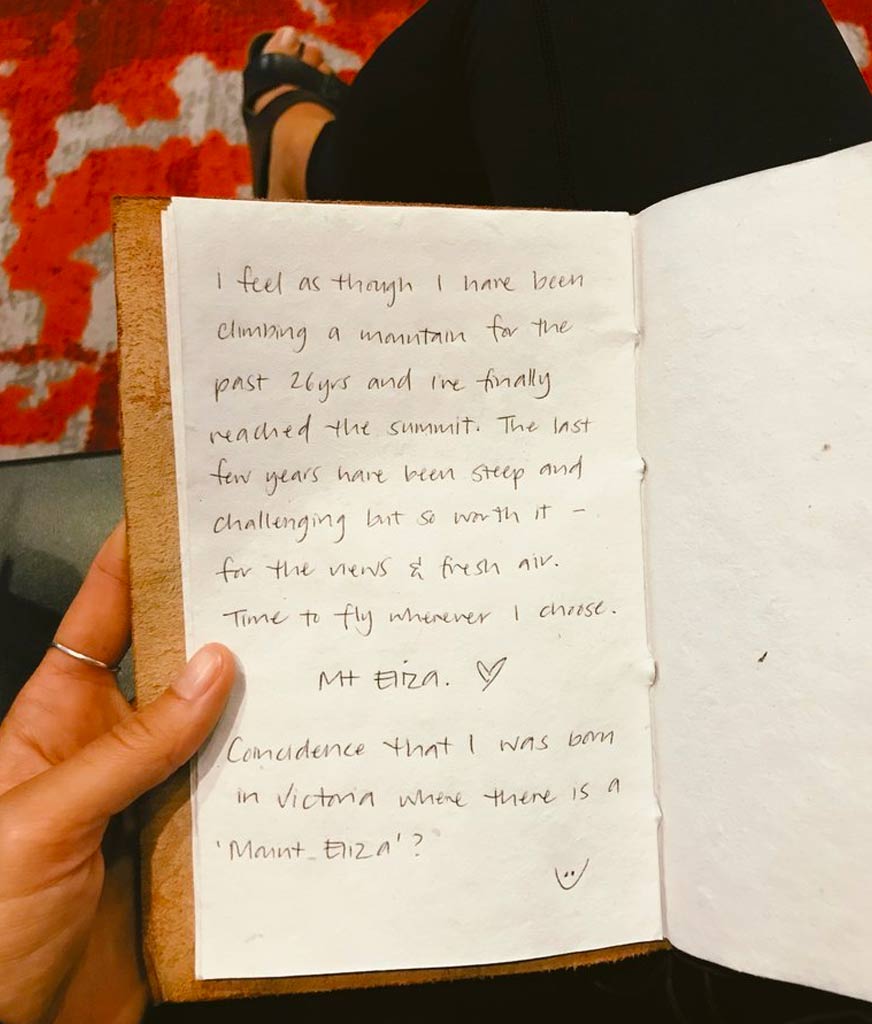 I feel as though I have been
climbing a mountain for the
past 26yrs and I've finally
reached the summit. The last
few years have been steep and
challenging but so worth it –
for the views & fresh air.
Time to fly wherever I choose.
Mt Eliza. ♡
Coincidence that I was born
in Victoria where there is a
'Mount Eliza'?